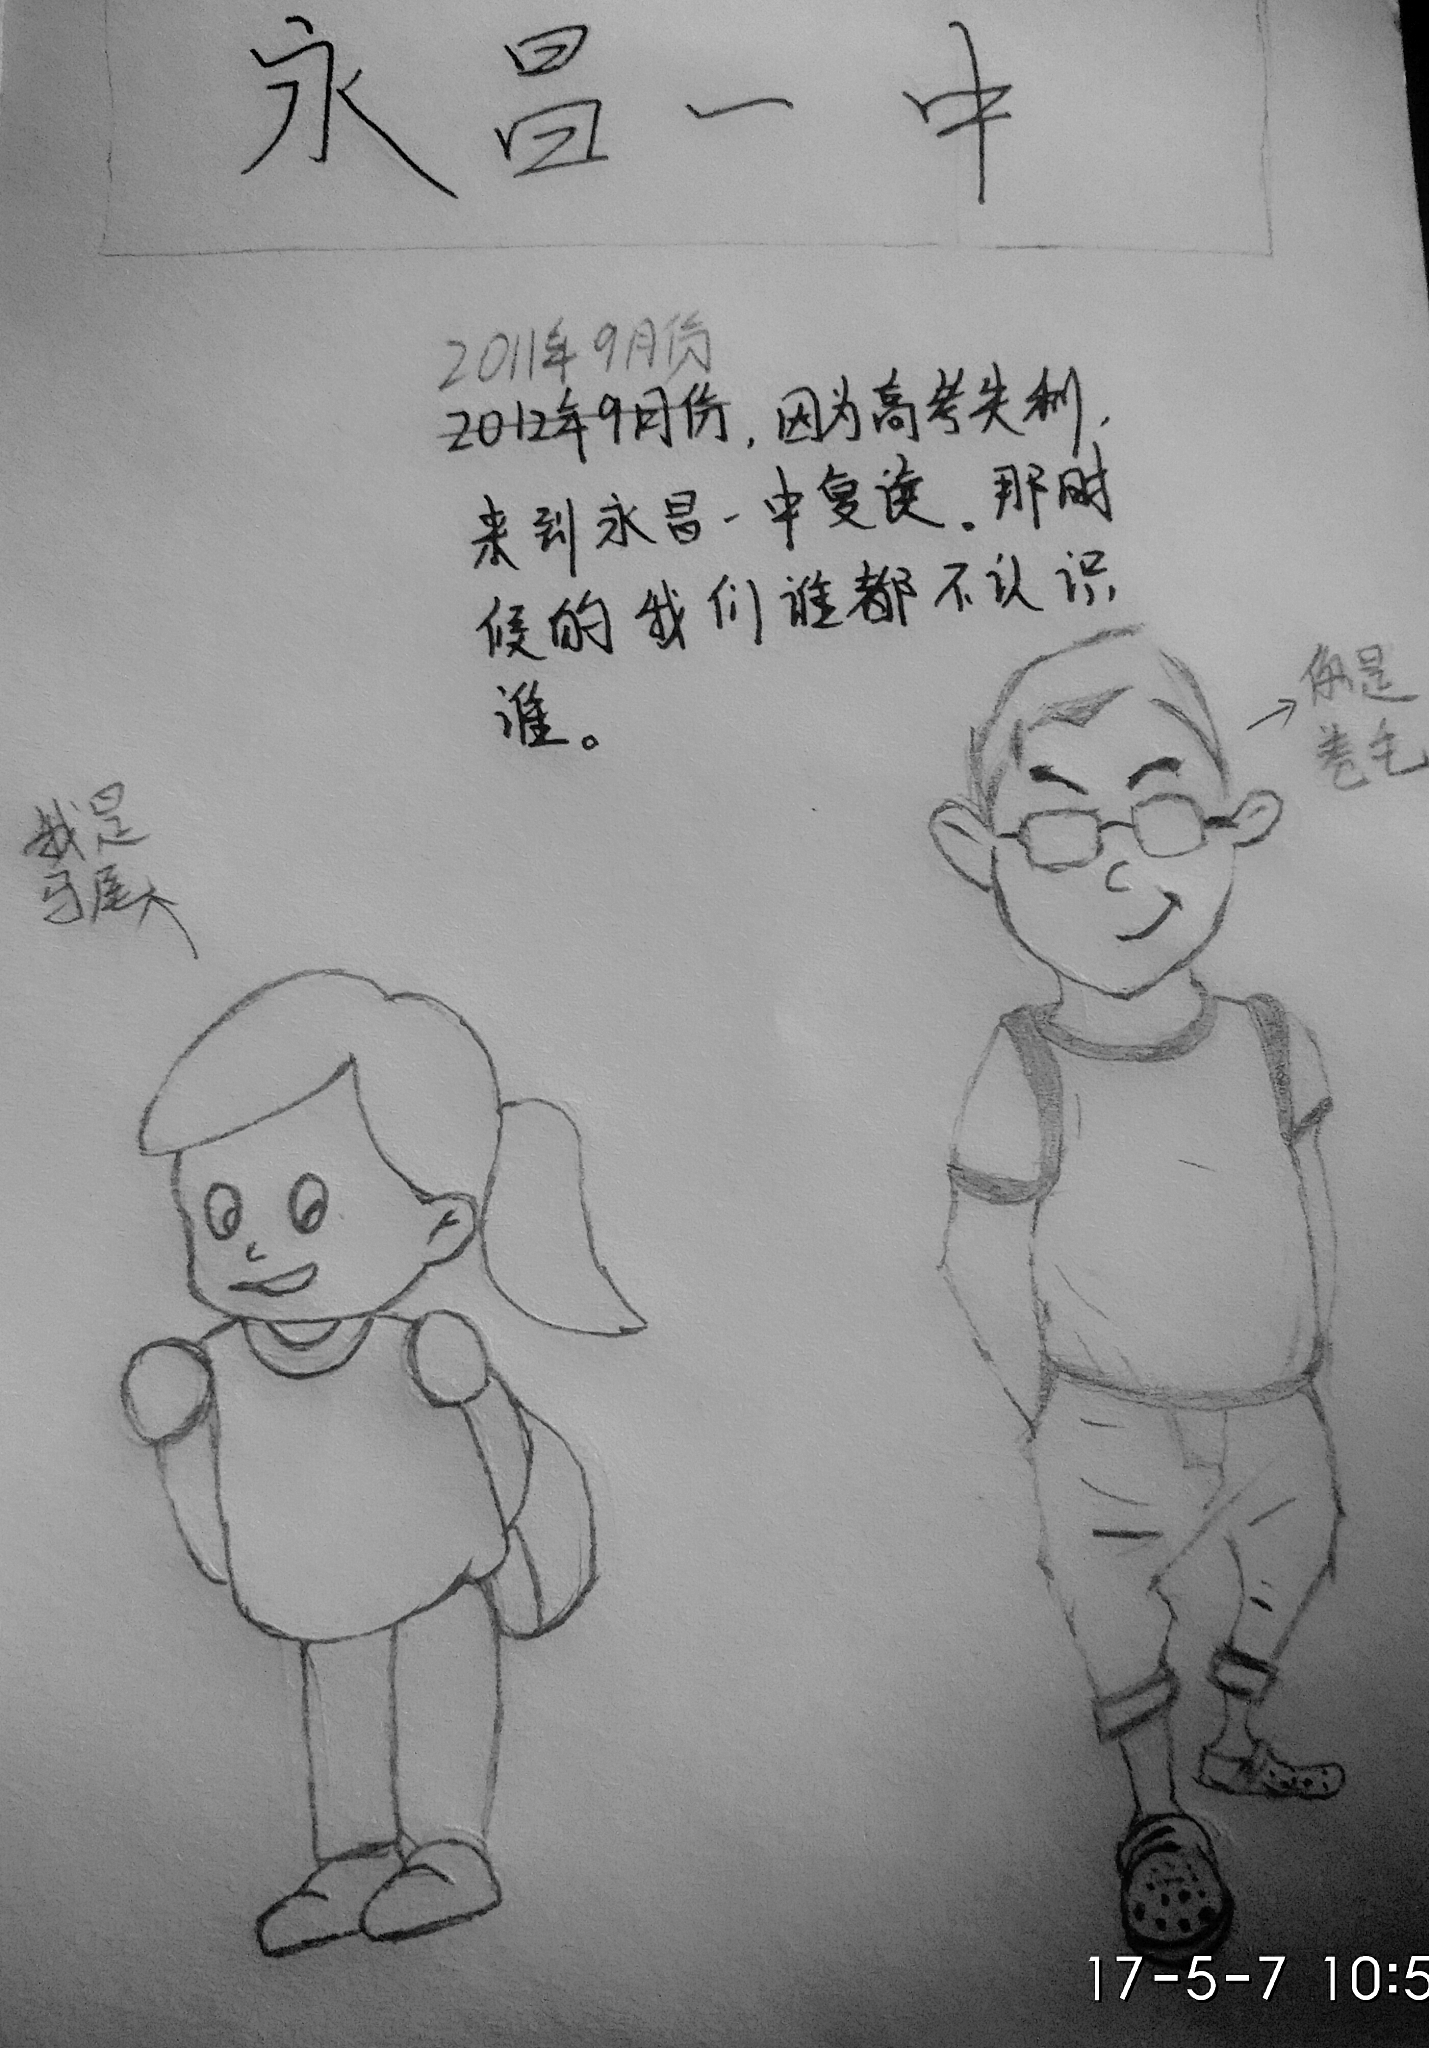 永昌一中
2011年9月份
2012年9月份,因为高考失利,
来到永昌一中复读。那时
候的我们谁都不认识
谁。
你是
卷毛
我是
马尾
17-5-7 10:5